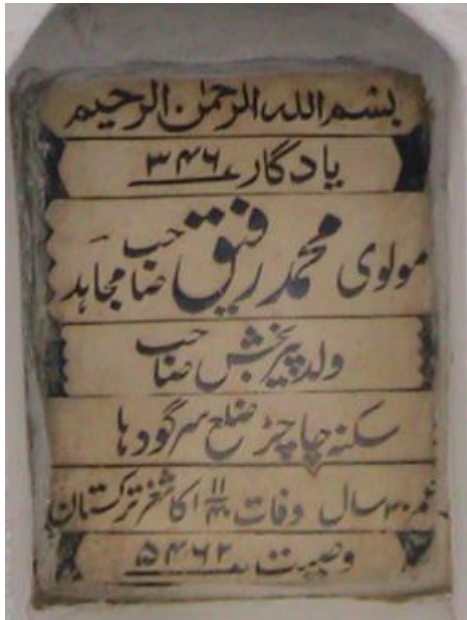 بسم الله الرحمٰن الرحیم
یادگار ۳۴۶
مولوی محمد رفیق صاحب مجاہد
ولد پیر بخش صاحب
سکنہ چاچڑ ضلع سرگودہا
عمر سال وفات کاشغر ترکستان
وصیت ۵۴۶۲